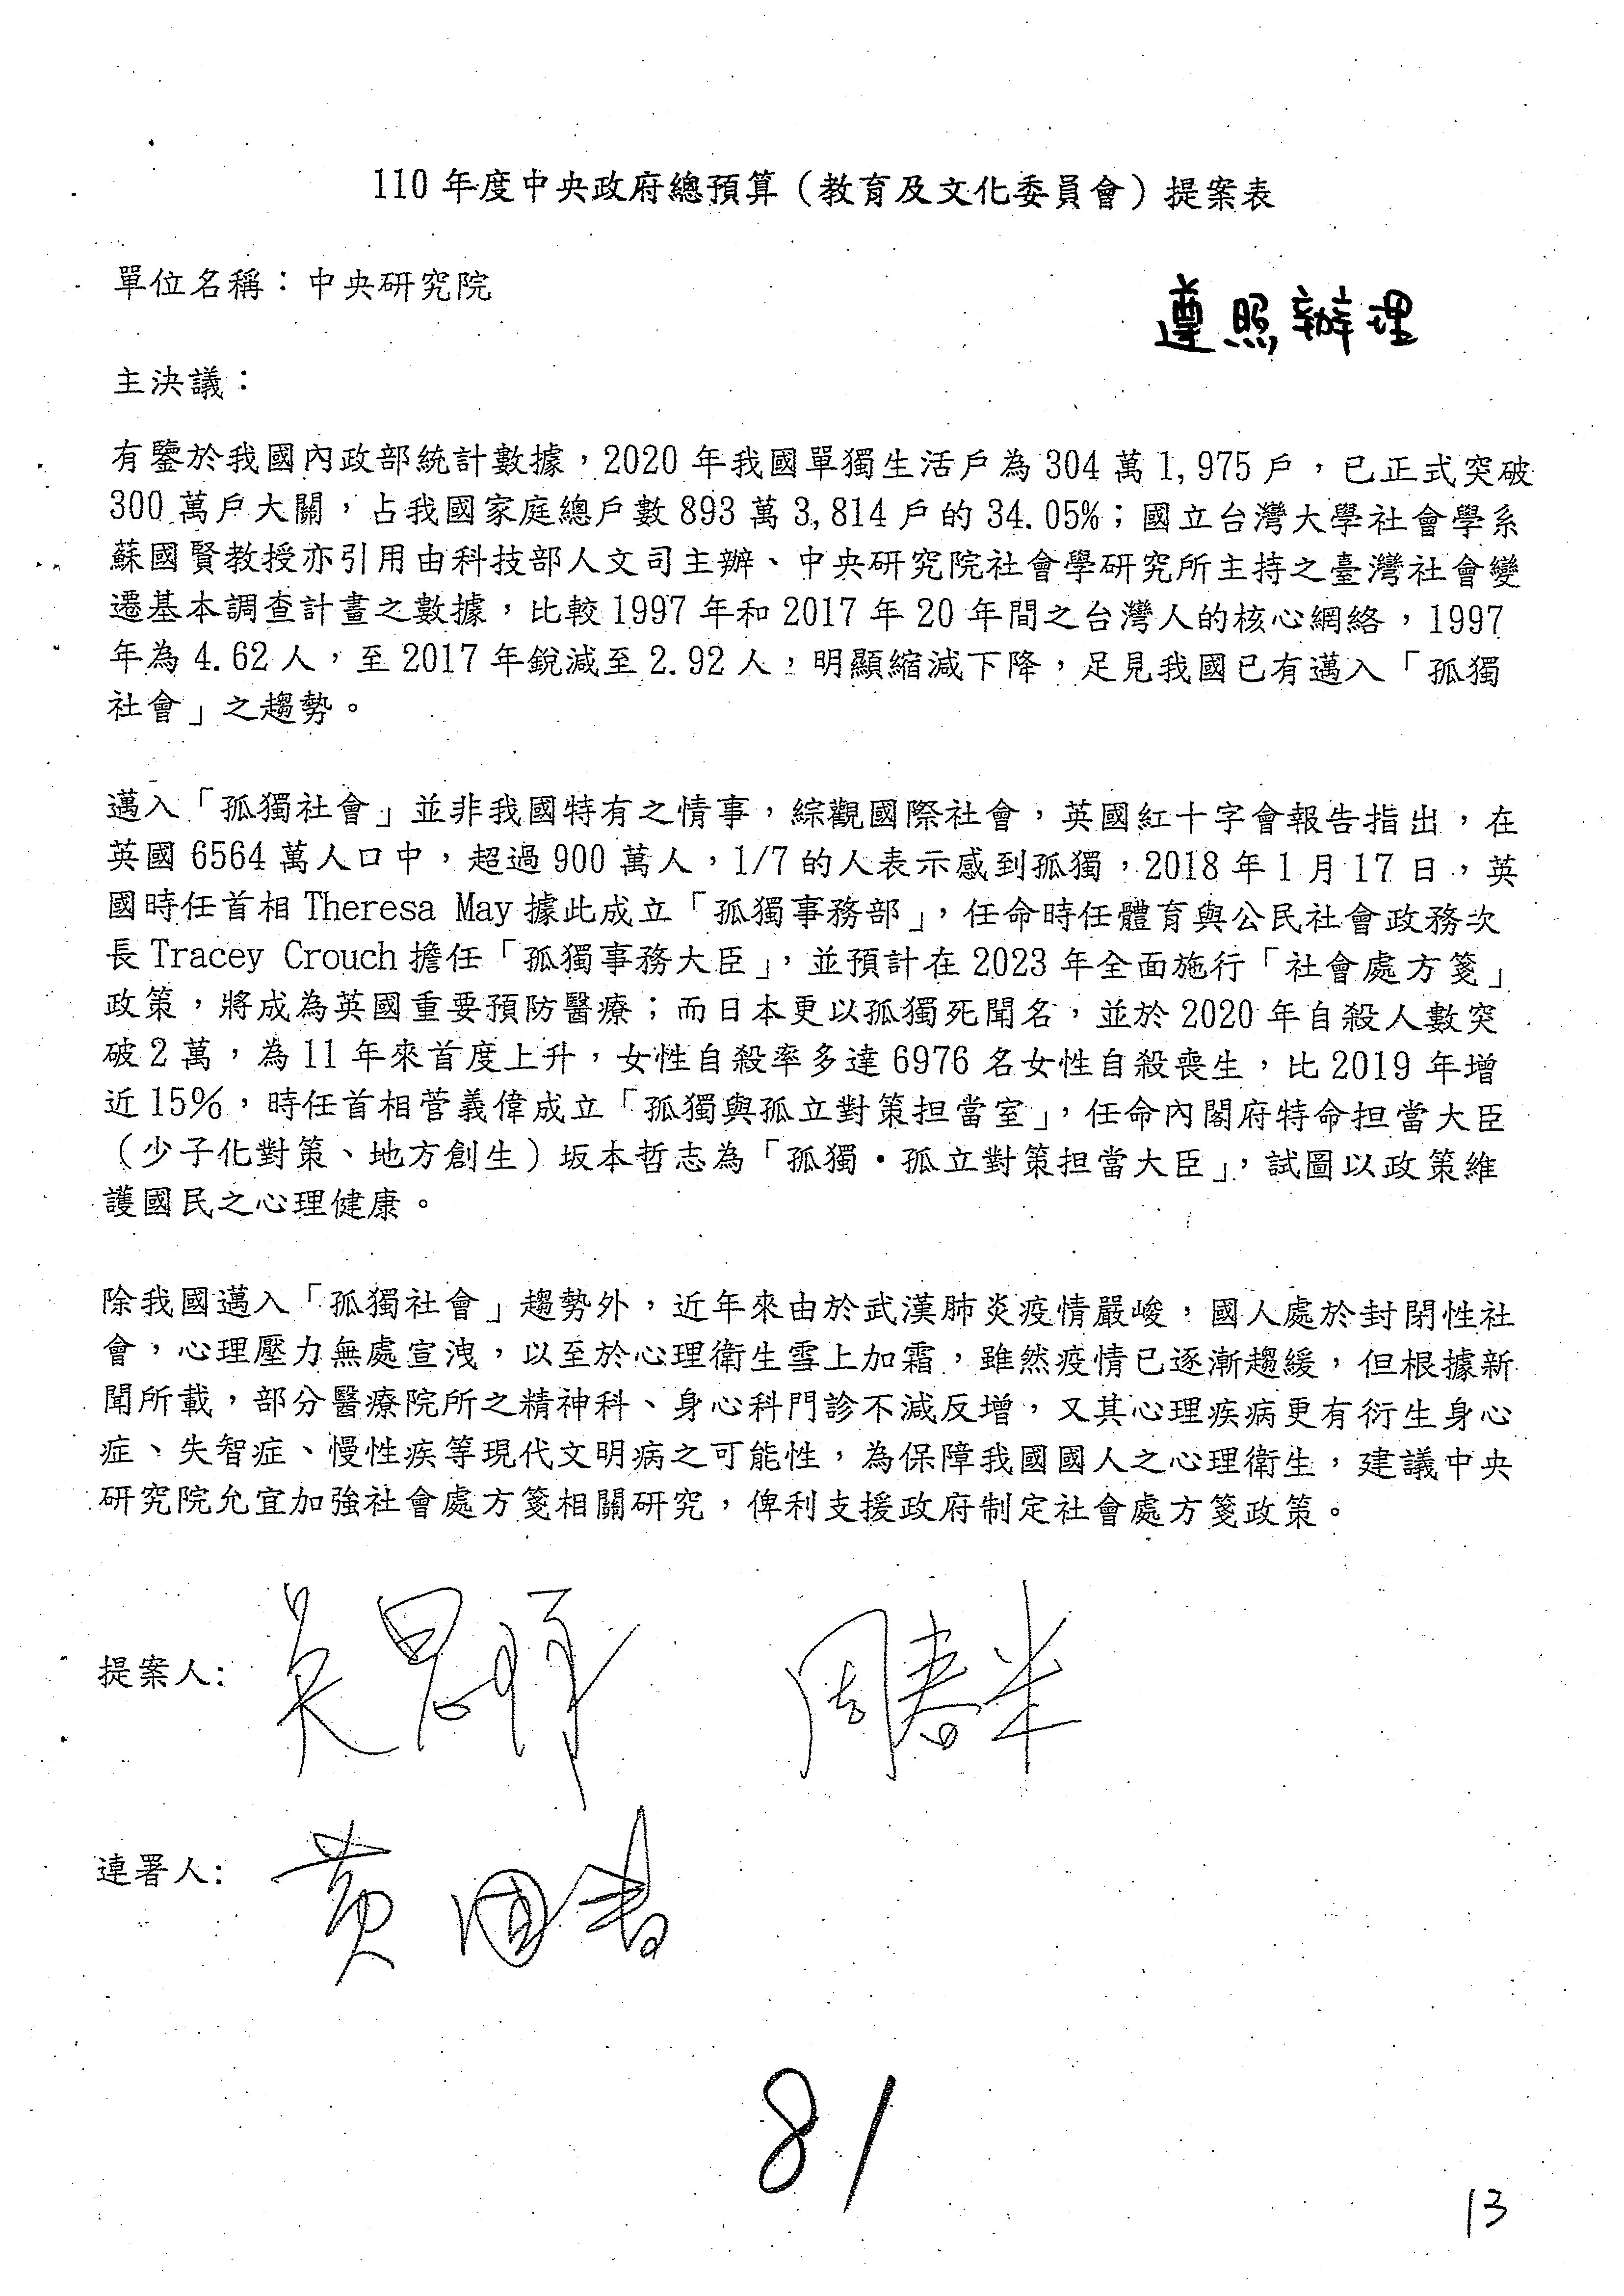 110 年度中央政府總預算（教育及文化委員會）提案表
單位名稱：中央研究院
遵照辦理
主決議：
有鑒於我國內政部統計數據，2020 年我國單獨生活戶為 304 萬 1,975 戶，已正式突破
300 萬戶大關，占我國家庭總戶數 893 萬 3,814 戶的 34.05%；國立台灣大學社會學系
蘇國賢教授亦引用由科技部人文司主辦、中央研究院社會學研究所主持之臺灣社會變
遷基本調查計畫之數據，比較 1997 年和 2017 年 20 年間之台灣人的核心網絡，1997
年為 4.62 人，至 2017 年銳減至 2.92 人，明顯縮減下降，足見我國已有邁入「孤獨
社會」之趨勢。
邁入「孤獨社會」並非我國特有之情事，綜觀國際社會，英國紅十字會報告指出，在
英國 6564 萬人口中，超過 900 萬人，1/7 的人表示感到孤獨，2018 年 1 月 17 日，英
國時任首相 Theresa May 據此成立「孤獨事務部」，任命時任體育與公民社會政務次
長 Tracey Crouch 擔任「孤獨事務大臣」，並預計在 2023 年全面施行「社會處方箋」
政策，將成為英國重要預防醫療；而日本更以孤獨死聞名，並於 2020 年自殺人數突
破 2 萬，為 11 年來首度上升，女性自殺率多達 6976 名女性自殺喪生，比 2019 年增
近 15%，時任首相菅義偉成立「孤獨與孤立對策担當室」，任命內閣府特命担當大臣
（少子化對策、地方創生）坂本哲志為「孤獨・孤立對策担當大臣」，試圖以政策維
護國民之心理健康。
除我國邁入「孤獨社會」趨勢外，近年來由於武漢肺炎疫情嚴峻，國人處於封閉性社
會，心理壓力無處宣洩，以至於心理衛生雪上加霜，雖然疫情已逐漸趨緩，但根據新
聞所載，部分醫療院所之精神科、身心科門診不減反增，又其心理疾病更有衍生身心
症、失智症、慢性疾等現代文明病之可能性，為保障我國國人之心理衛生，建議中央
研究院允宜加強社會處方箋相關研究，俾利支援政府制定社會處方箋政策。
提案人：
周春米
連署人：
黃國書
81
13